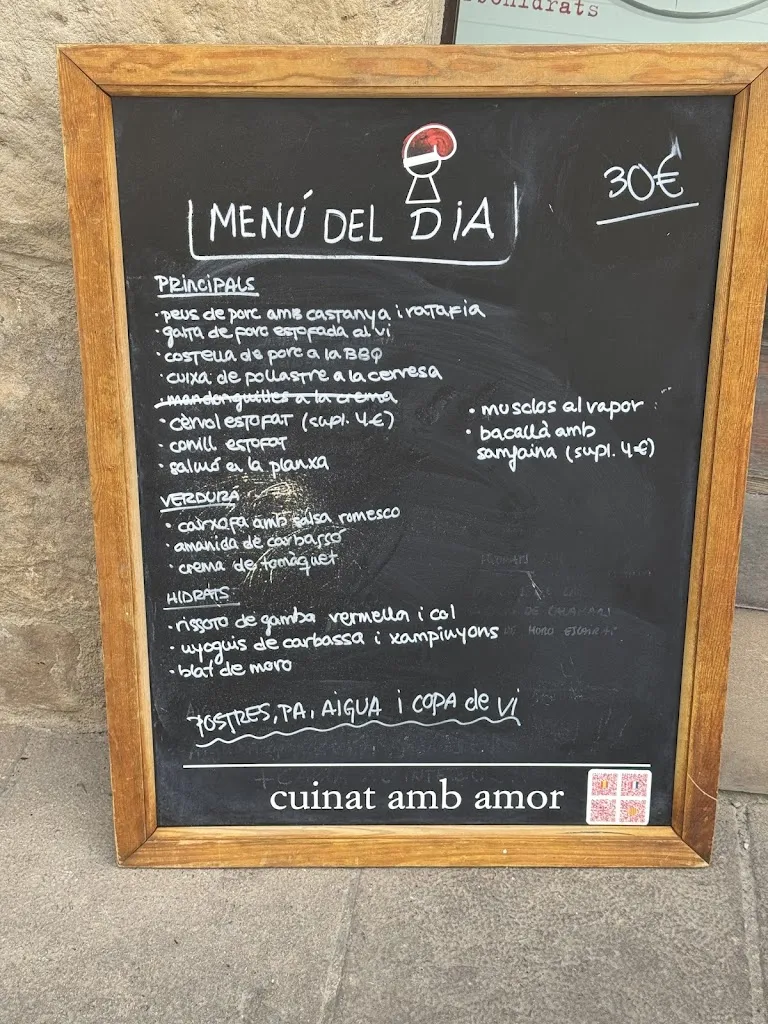 30€
MENÚ DEL DIA
PRINCIPALS
· peus de porc amb castanya i ratafia
· galta de porc estofada al vi
· costella de porc a la BBQ
· cuixa de pollastre a la cervesa
· mandonguilles a la crema
· cèrvol estofat (supl. 4€)
· conill estofat
· salmó a la planxa
• musclos al vapor
• bacallà amb
samfaina (supl. 4€)
VERDURA
· carxofa amb salsa romesco
· amanida de carbassó
· crema de tomàquet
HIDRATS
· rissoto de gamba vermella i col
· nyoquis de carbassa i xampinyons
· blat de moro
POSTRES, PA, AIGUA i COPA de Vi
cuinat amb amor